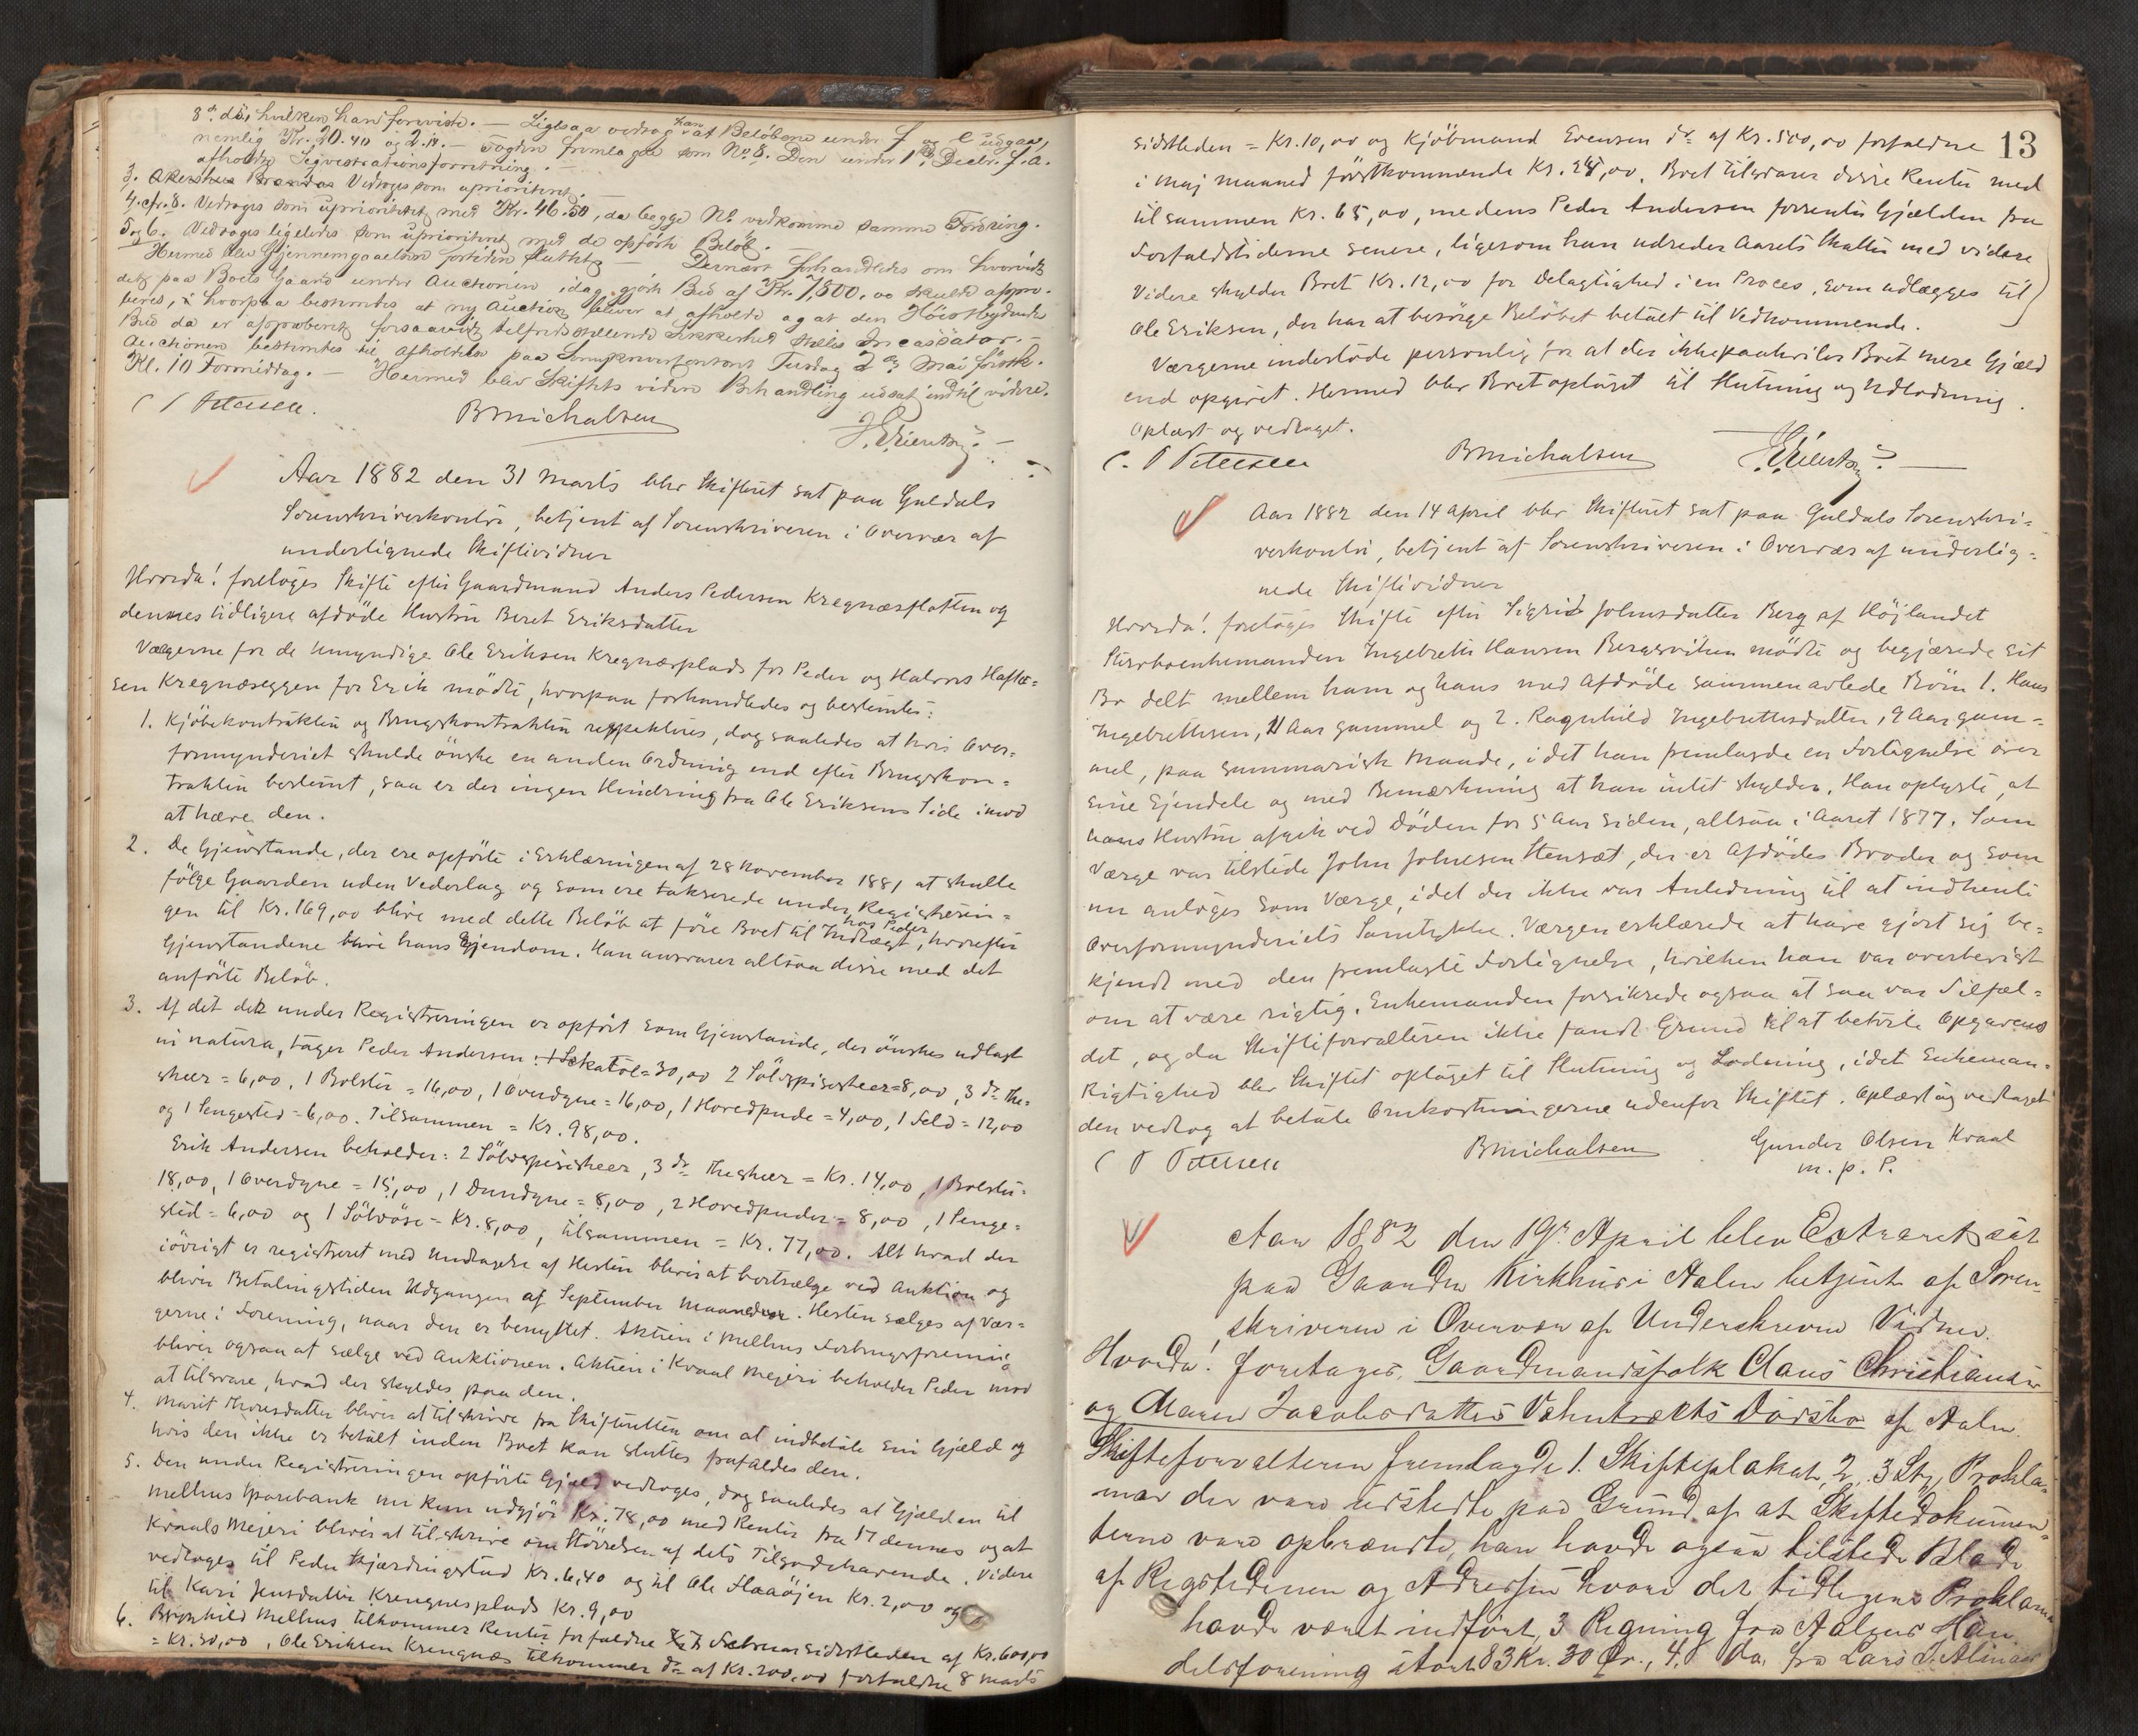 8. da, hvilken han foreviste. — Ligesaa vedtog han at Beløbene under f og e udgaar,
nemlig Kr. 20.40 og 2.19. — Fogden fremlagde som No 8. Den under 1ste Decbr. f. A.
afholdte Seqvestrationsforretning. —
3. Akershus Brændev Vedtoges som uprioriteret. —
4. cfr. 8. Vedtoges som uprioriteret med Kr. 46.50, da begge No vedkomme samme Fordring.
5 og 6. Vedtoges ligeledes som uprioriteret med de opførte Beløb. —
Hermed blev Gjennemgaaelsen fortiden sluttet — Dernæst forhandledes om hvorvidt
det paa Boets Gaard under Auctionen idag gjorte Bud af Kr. 7,800.00 skulde appro-
beres, hvorpaa bestemtes at ny Auction bliver at afholde og at den Høistbydendes
Bud da er approberet forsaavidt tilfredsstillende Sikkerhed stilles Incassator. —
Auctionen bestemtes til Afholdelse paa Sorenskriverkontoret Tirsdag 2den Mai førstk.
Kl. 10 Formiddag. — Hermed blev Skiftets videre Behandling udsat indtil videre.
C T Petersen. BMichalsen
Aar 1882 den 31 Marts blev Skifteret sat paa Guldals
Sorenskriverkontor, betjent af Sorenskriveren i Overvær af
underlignede Skiftevidner
Hvorda! foretoges Skifte efter Gaardmand Anders Pedersen Kregnæsflatten og
dennes tidligere afdøde Hustru Beret Eriksdatter
Værgerne for de Umyndige Ole Eriksen Kregnæsplads for Peder og Halvors Hafto=
sen Kregnæseggen for Erik mødte, hvorpaa forhandledes og bestemtes:
1. Kjøbekontrakten og Brugskontrakten respekteres, dog saaledes at hvis Over=
formynderiet skulde ønske en anden Ordning end efter Brugskon=
trakten bestemt, saa er der ingen Hindring fra Ole Eriksens Side imod
at hæve den.
2. De Gjenstande, der ere opførte i Erklæringen af 28 November 1881 at skulle
følge Gaarden uden Vederlag og som ere takserede under Registrerin=
gen til Kr. 169,00 blive med dette Beløb at føre Boet til Indtægt hos Peder, hvorefter
Gjenstandene blive hans Ejendom. Han ansvarer altsaa disse med det
anførte Beløb.
3. Af det der under Registreringen er opført som Gjenstande, der ønskes udlagt
in natura, tager Peder Andersen: 1 Skatol = 30,00 2 Sølvspiseskeer = 8,00, 3 do The=
skeer = 6,00, 1 Bolster = 16,00, 1 Overdyne = 16,00, 1 Hovedpude = 4,00, 1 Feld = 12,00
og 1 Sengested = 6,00. Tilsammen = Kr. 98,00.
Erik Andersen beholder: 2 Sølvspiseskeer, 3 do Theskeer = Kr. 14,00, 1 Bolster=
18,00, 1 Overdyne = 15,00, 1 Dundyne = 8,00, 2 Hovedpuder = 8,00, 1 Senge=
sted = 6,00 og 1 Sølvøse = Kr. 8,00, tilsammen = Kr. 77,00. Alt hvad der
iøvrigt er registreret med Undtagelse af Hesten bliver at bortsælge ved Auktion og
bliver Betalingstiden Udgangen af September Maaned. Hesten sælges af Vær=
gerne i Forening, naar den er benyttet. Aktien i Melhus Forbrugsforening
bliver ogsaa at sælge ved Auktionen. Aktien i Kvaal Mejeri beholder Peder mod
at tilsvare, hvad der skyldes paa den.
4. Marit Thoresdatter bliver at tilskrive fra Skifteretten om at indbetale sin Gjæld og
hvis den ikke er betalt inden Boet kan sluttes frafaldes den.
5. Den under Registreringen opførte Gjæld vedtoges, dog saaledes at Gjælden til
Melhus Sparebank nu kun udgjør Kr. 78,00 med Renter fra 17 dennes og at
Kvaals Mejeri bliver at tilskrive om Størrelsen af dets Tilgodehavende. Videre
vedtoges til Peder Kjærdingstad Kr. 6,40 og til Ole Haaøjen Kr. 2,00 og
til Kari Jensdatter Krengnesplads Kr. 9,00
6. Brynhild Melhus tilkommer Renter forfaldne Februar sidstleden af Kr. 600,00
= Kr. 30,00, Ole Eriksen Krengnæs tilkommer do af Kr. 200,00 forfaldne 8 Marts
13
sidstleden = Kr. 10,00 og Kjøbmand Evensen do af Kr. 500,00 forfaldne
i Maj Maaned førstkommende Kr. 25,00. Boet tilsvarer disse Renter med
tilsammen Kr. 65,00, medens Peder Andersen forrenter Gjælden fra
Forfaldstiderne senere, ligesom han udreder Aarets Skatter med videre
Videre skylder Boet Kr. 12,00 for Delagtighed i en Proces, som udlægges til
Ole Eriksen, der har at besørge Beløbet betalt til Vedkommende.
Værgerne indestode personlig for at der ikke paahviler Boet mere Gjæld
end opgivet. Hermed blev Boet optaget til Slutning og Udlodning.
Oplæst og vedtaget.
C. T Petersen BMichalsen
Aar 1882 den 14 April blev Skifteret sat paa Guldals Sorenskri=
verkontor, betjent af Sorenskriveren i Overvær af underlig=
nede Skiftevidner
Hvorda! foretoges Skifte efter Sigrid Johnsdatter Berg af Højlandet
Sterboenkemanden Ingebreth Hansen Bergsviken mødte og begjærede sit
Bo delt mellem ham og hans med Afdøde sammenavlede Børn 1. Hans
Ingebrethsen, 11 Aar gammel og 2. Ragnhild Ingebrethsdatter, 9 Aar gam=
mel, paa summarisk Maade, idet han fremlagde en Fortegnelse over
sine Ejendele og med Bemærkning at han intet skylder. Han oplyste, at
hans Hustru afgik ved Døden for 5 Aar siden, altsaa i Aaret 1877. Som
Værge var tilstede John Johnsen Stensæt, der er Afdødes Broder og som
nu antoges som Værge, idet der ikke var Anledning til at indhente
Overformynderiets Samtykke. Værgen erklærede at have gjort sig be=
kjendt med den fremlagte Fortegnelse, hvilken han var overbevist
om at være rigtig. Enkemanden forsikrede ogsaa at saa var Tilfæl=
det, og da Skifteforvalteren ikke fandt Grund til at betvile Opgavens
Rigtighed blev Skiftet optaget til Slutning og Lodning, idet Enkeman=
den vedtog at betale Omkostningerne udenfor Skiftet. Oplæst og vedtaget
C T Petersen BMichalsen Gunder Olsen Kvaal
m. p. P.
Aar 1882 den 19de April blev Extraret sat
paa Gaarden Kirkhus i Aalen betjent af Soren-
skriveren i Overvær af Underskrevne Vidner.
Hvorda! foretages, Gaardmandsfolk Claus Christiansen
og Maren Jacobsdatters Dødsbo af Aalen.
Skifteforvalteren fremlagde 1. Skifteplakat, 2, 3 Stk. Prokla-
maer der vare udstedte paa Grund af at Skiftedokumen=
terne vare opbrændte, han havde ogsaa tilstede Blade
af Rigstidenen og Adressen hvori det tidligere Proklama
havde været indført, 3 Regning fra Aalens Han
delsforening stort 83 Kr. 30 Ør., 4. Do. fra Lars